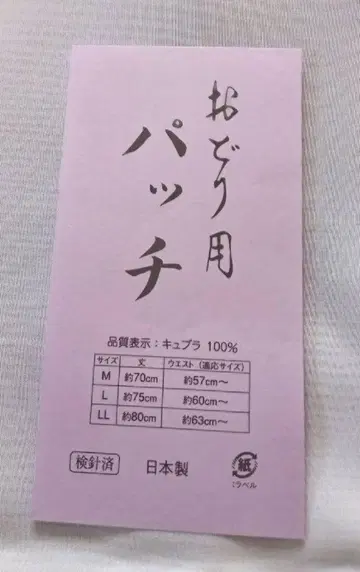 おどり用
パッチ
品質表示：キュプラ 100%
サイズ 丈 ウエスト（適応サイズ）
M 約70cm 約57cm～
L 約75cm 約60cm～
LL 約80cm 約63cm～
検針済 日本製 紙
：ラベル